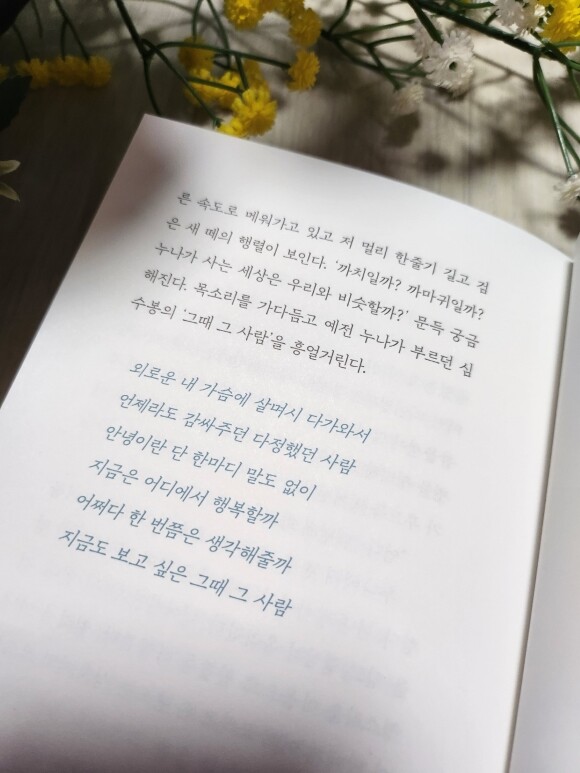 른 속도로 메워가고 있고 저 멀리 한줄기 길고 검
은 새 떼의 행렬이 보인다. '까치일까? 까마귀일까?
누나가 사는 세상은 우리와 비슷할까?' 문득 궁금
해진다. 목소리를 가다듬고 예전 누나가 부르던 심
수봉의 '그때 그 사람'을 흥얼거린다.
외로운 내 가슴에 살며시 다가와서
언제라도 감싸주던 다정했던 사람
안녕이란 단 한마디 말도 없이
지금은 어디에서 행복할까
어쩌다 한 번쯤은 생각해줄까
지금도 보고 싶은 그때 그 사람